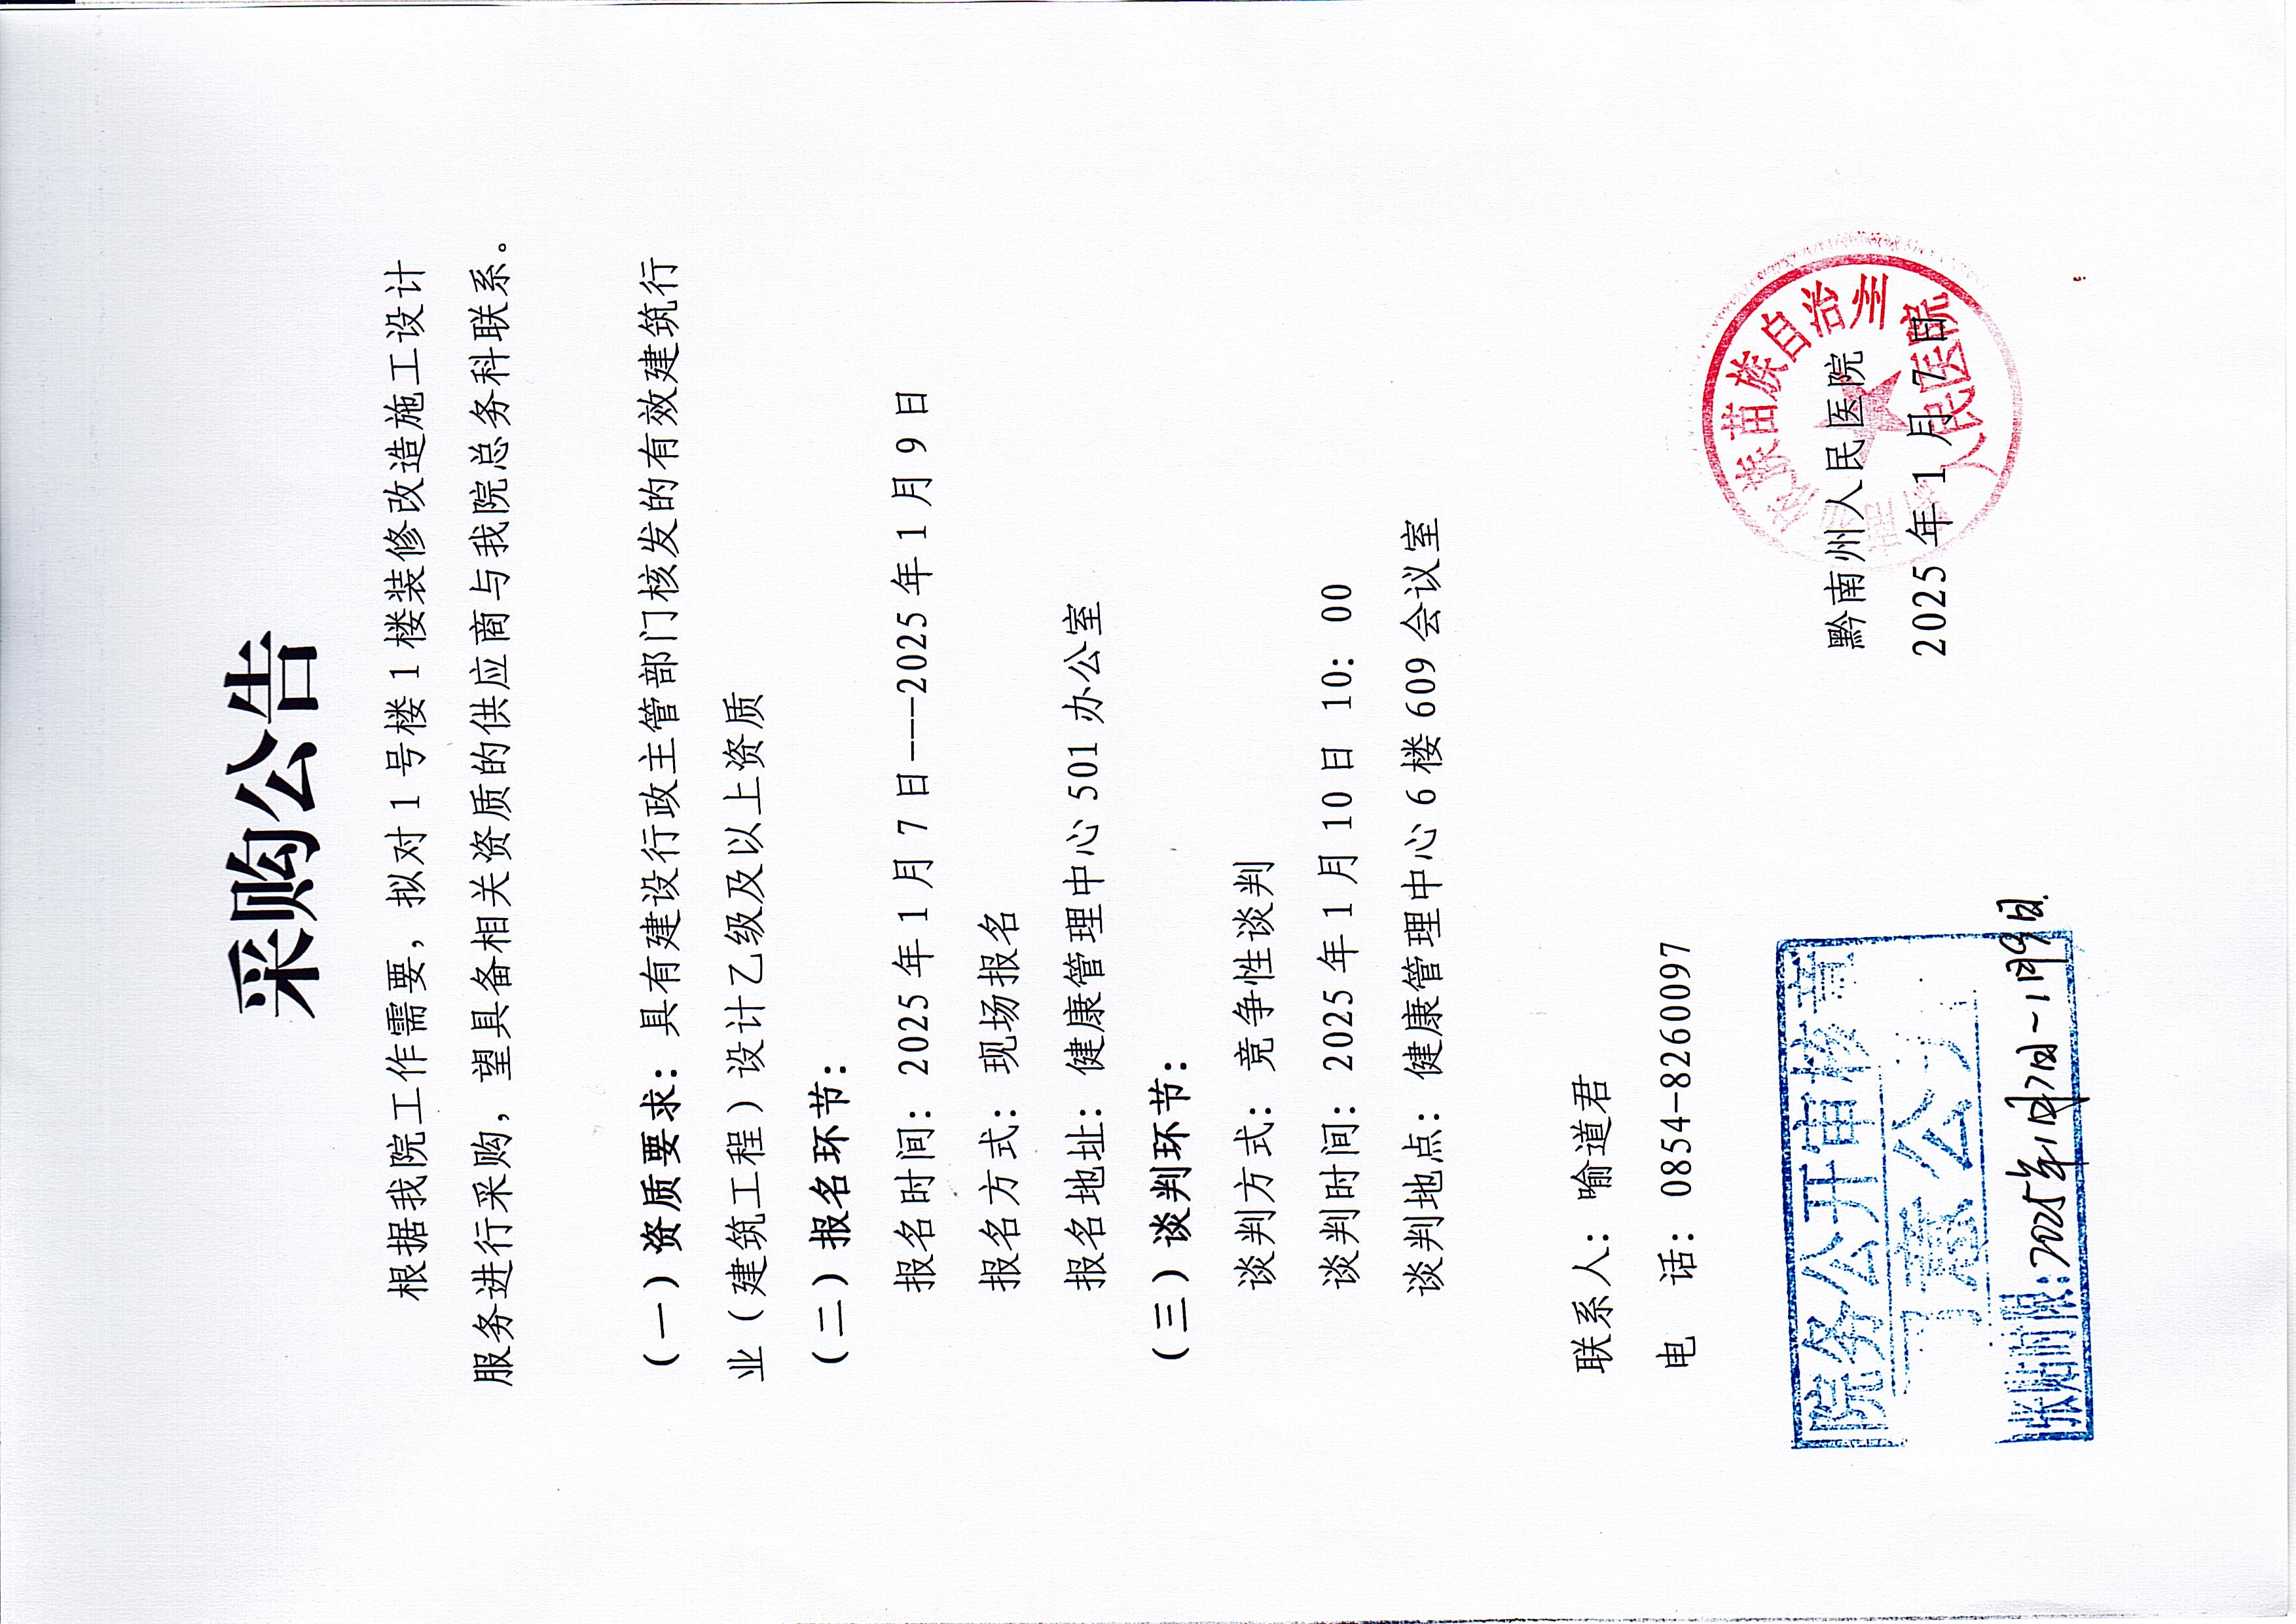 采购公告
根据我院工作需要，拟对1号楼1楼装修改造施工设计
服务进行采购，望具备相关资质的供应商与我院总务科联系。
（一）资质要求：具有建设行政主管部门核发的有效建筑行
业（建筑工程）设计乙级及以上资质
（二）报名环节：
报名时间：2025年1月7日---2025年1月9日
报名方式：现场报名
报名地址：健康管理中心501办公室
（三）谈判环节：
谈判方式：竞争性谈判
谈判时间：2025年1月10日10：00
谈判地点：健康管理中心6楼609会议室
联系人：喻道君
电 话：0854-8260097
黔南州人民医院
2025年1月7日
族苗族自治州
人民医院
院务公开审核章
同意公开
张贴时限：2025年1月7日~1月9日